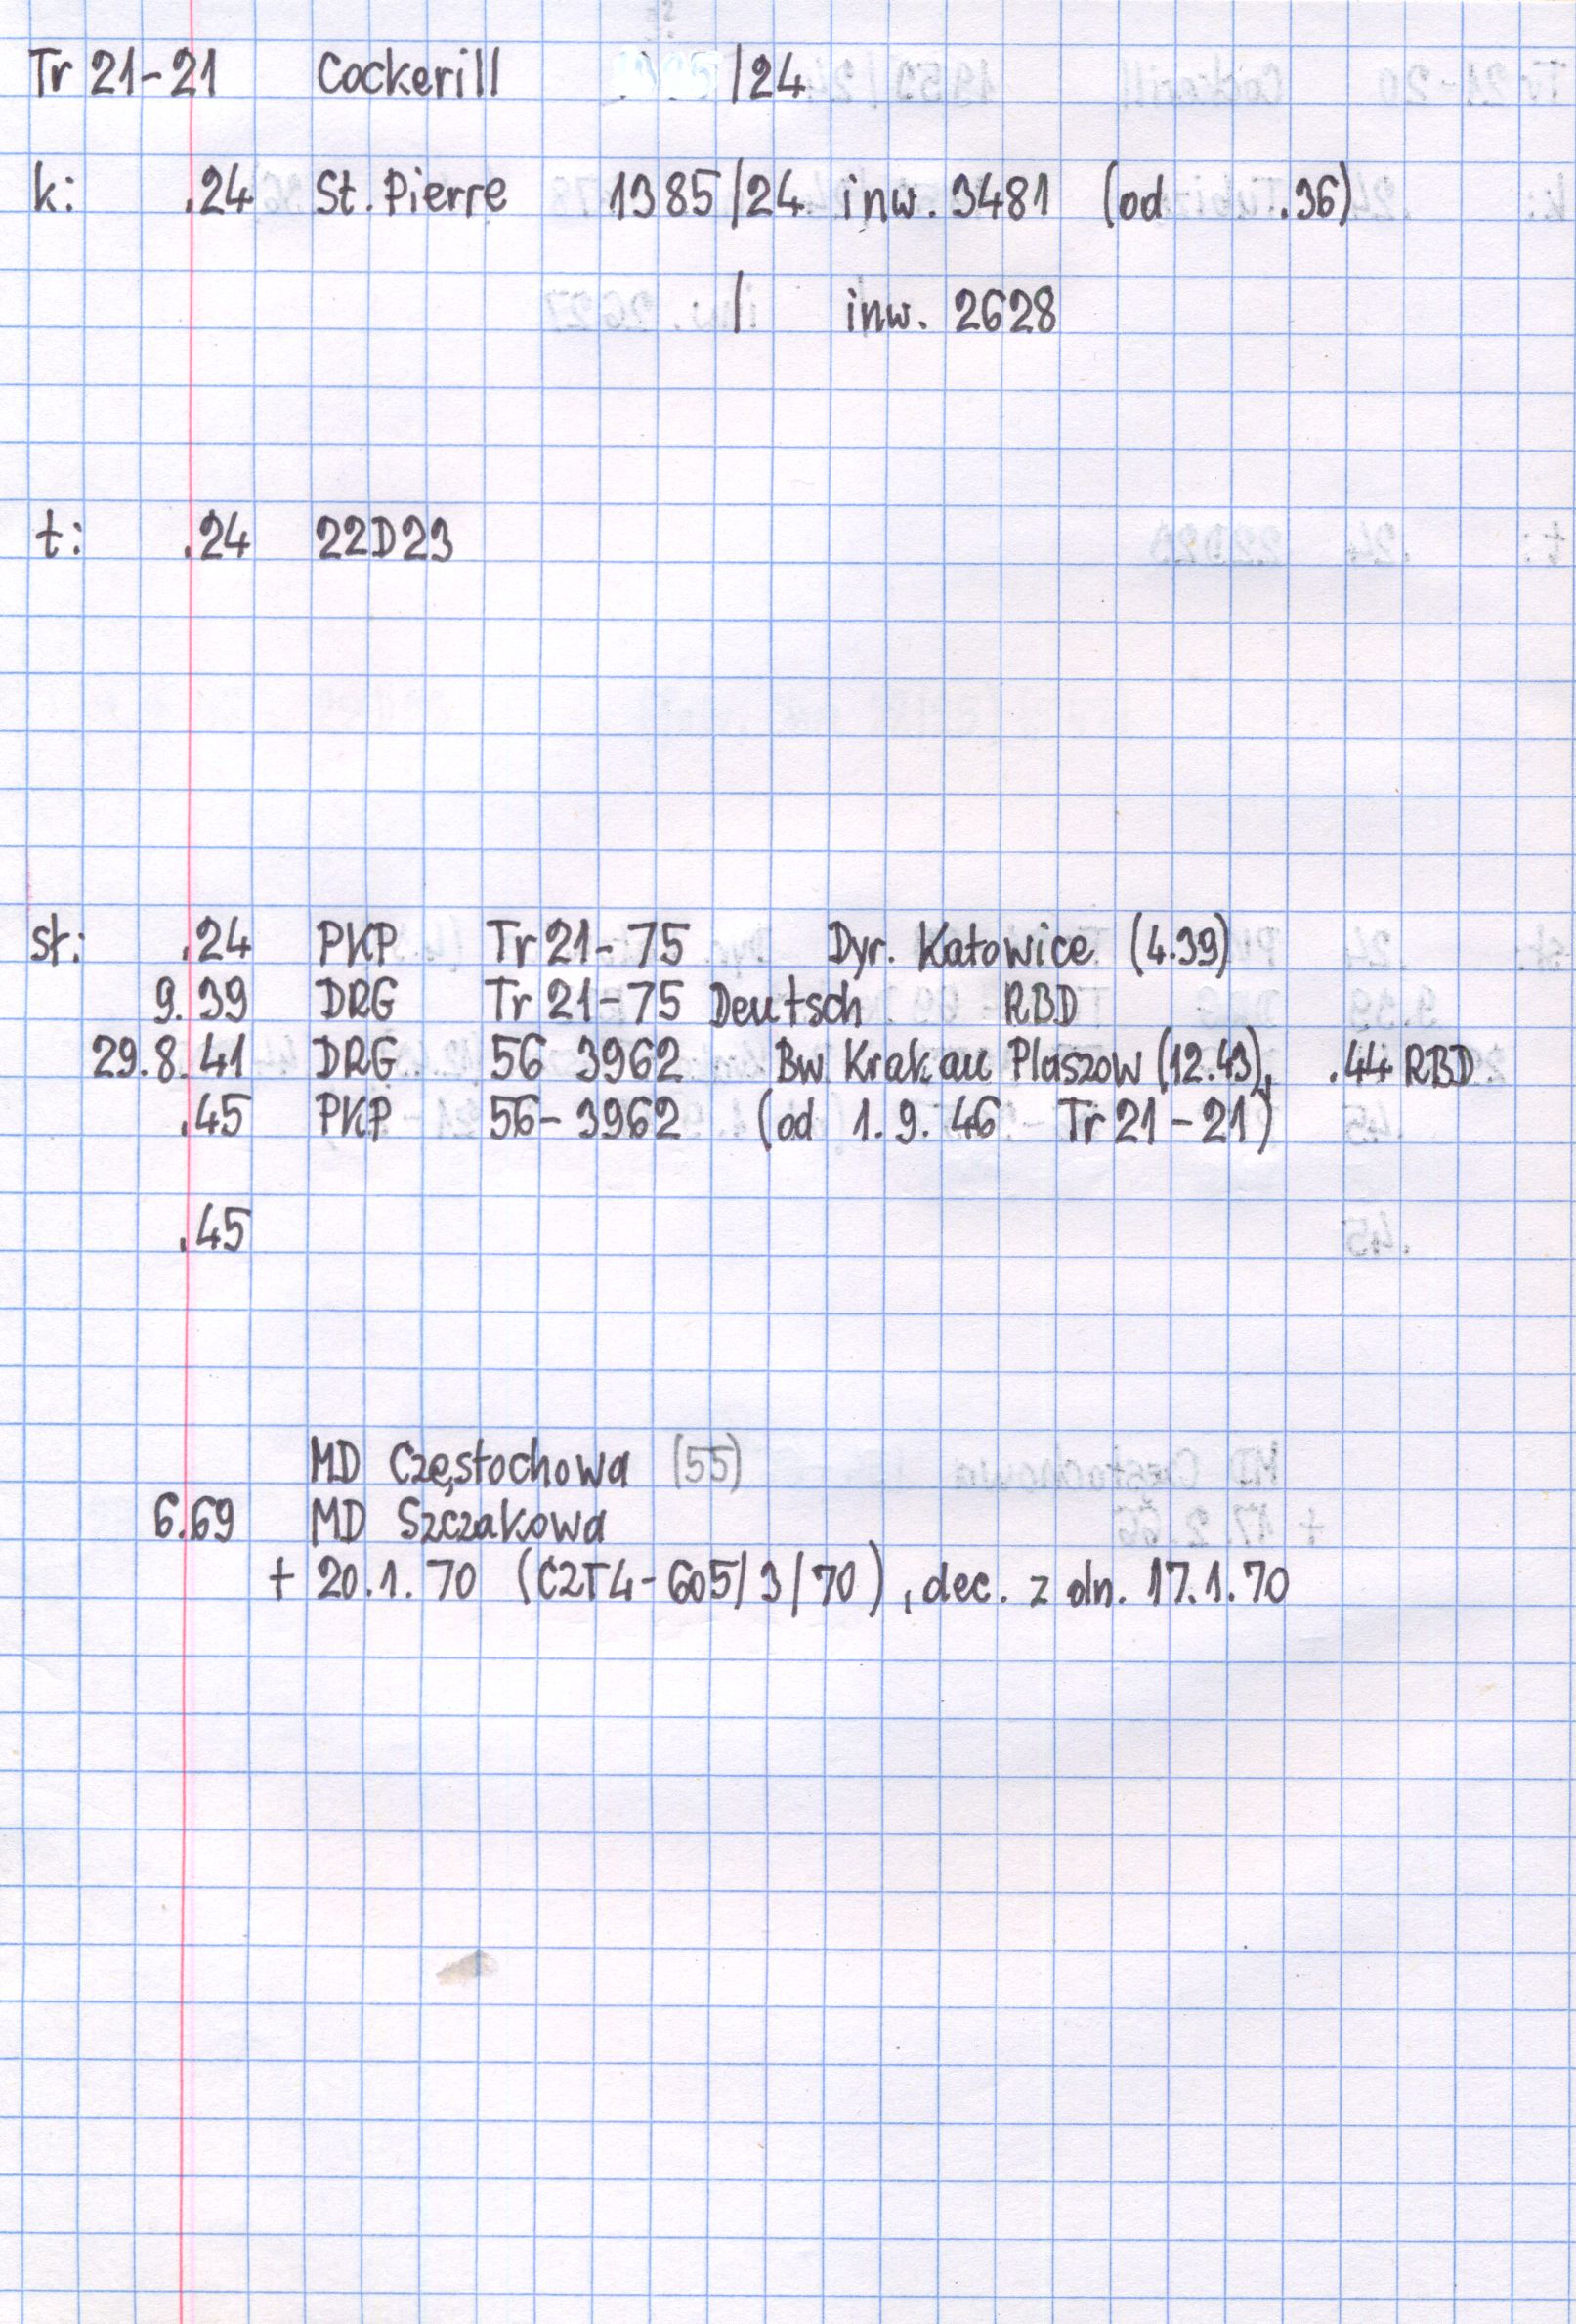 Tr 21-21 Cockerill /24
k: .24 St. Pierre 1385/24 inw. 3481 (od .36)
/ inw. 2628
t: .24 22D23
st: .24 PKP Tr 21-75 Dyr. Katowice (4.39)
9.39 DRG Tr 21-75 Deutsch RBD
29.8.41 DRG 56 3962 Bw Krakau Plaszow (12.43), .44 RBD
.45 PKP 56-3962 (od 1.9.46 Tr 21-21)
.45
MD Częstochowa (55)
6.69 MD Szczakowa
+ 20.1.70 (C2T4-605/3/70), dec. z dn. 17.1.70